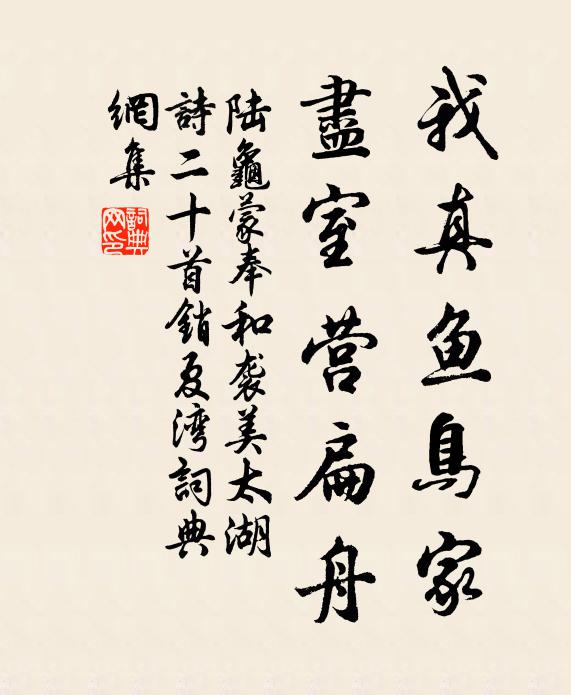 我真鱼鳥家
盡室营扁舟
陆龜蒙奉和袭美太湖
詩二十首銷夏湾詞典
網集
詞典网印